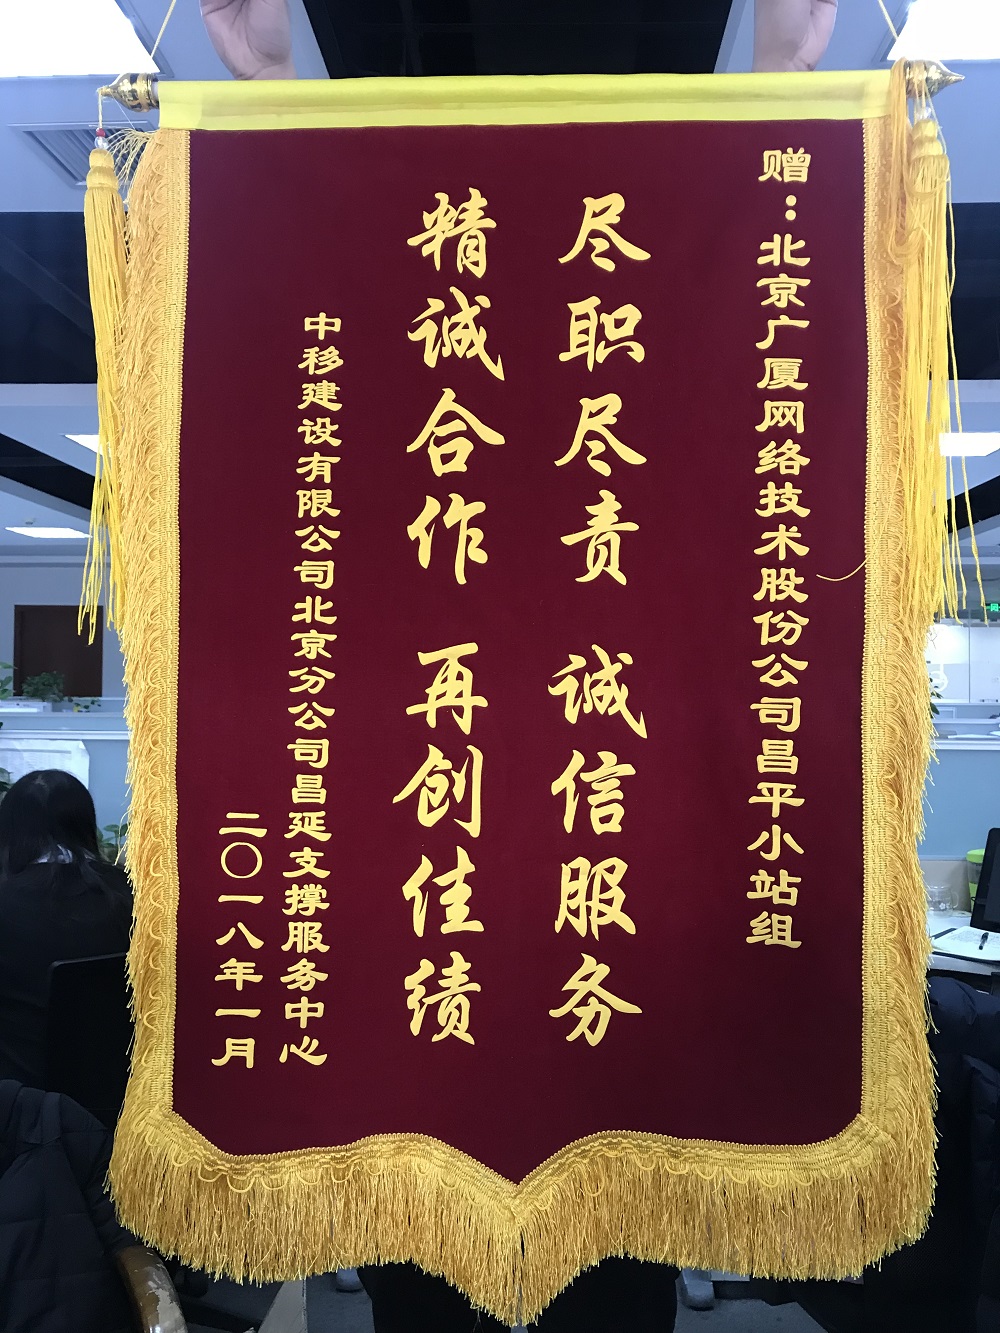 赠：北京广厦网络技术股份公司昌平小站组
尽职尽责 诚信服务
精诚合作 再创佳绩
中移建设有限公司北京分公司昌延支撑服务中心
二〇一八年一月